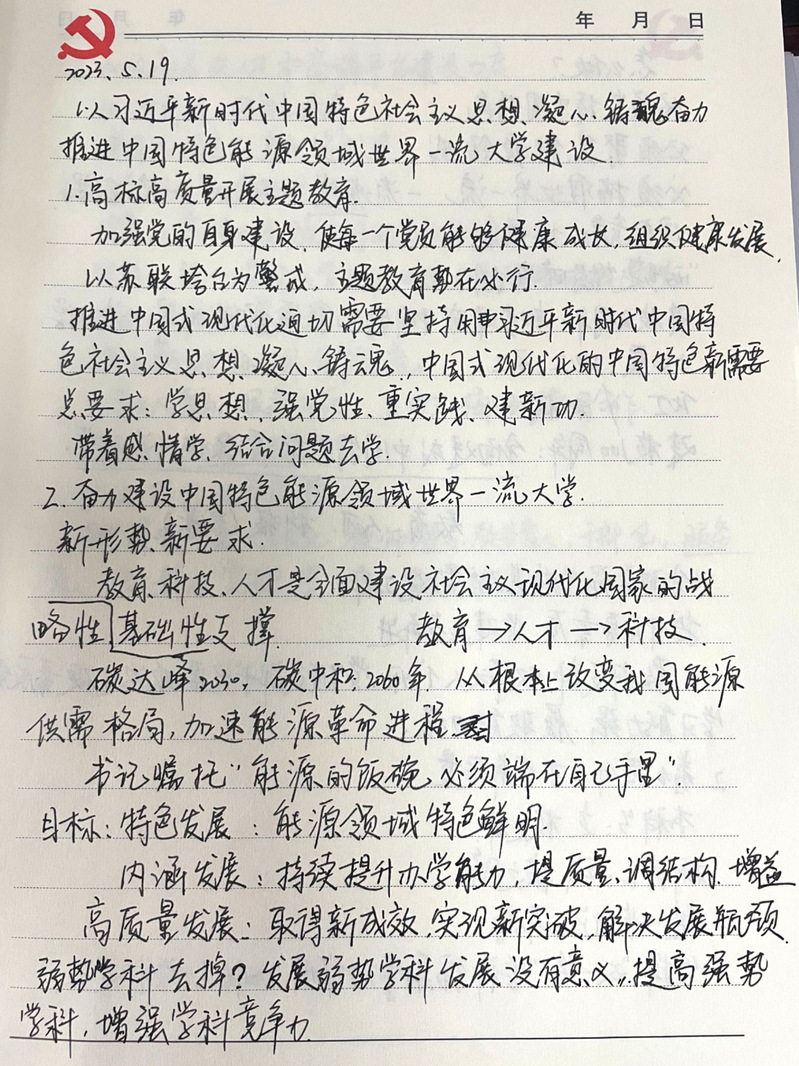 年 月 日
2023.5.19.
以习近平新时代中国特色社会主义思想凝心铸魂奋力
推进中国特色能源领域世界一流大学建设.
1.高标高质量开展主题教育.
加强党的自身建设、使每一个党员能够健康成长,组织健康发展.
以苏联垮台为警戒,主题教育势在必行.
推进中国式现代化迫切需要坚持用习近平新时代中国特
色社会主义思想凝心铸魂,中国式现代化的中国特色需要
总要求:学思想、强党性、重实践、建新功.
带着感情学、结合问题去学.
2.奋力建设中国特色能源领域世界一流大学.
新形势、新要求.
教育、科技、人才是全面建设社会主义现代化国家的战
略性、基础性支撑. 教育→人才→科技.
碳达峰2030,碳中和2060年.从根本上改变我国能源
供需格局,加速能源革命进程
书记嘱托"能源的饭碗必须端在自己手里".
目标:特色发展:能源领域特色鲜明.
内涵发展:持续提升办学能力,提质量、调结构、增益
高质量发展:取得新成效,实现新突破,解决发展瓶颈.
弱势学科去掉?发展弱势学科发展没有意义,提高强势
学科,增强学科竞争力.